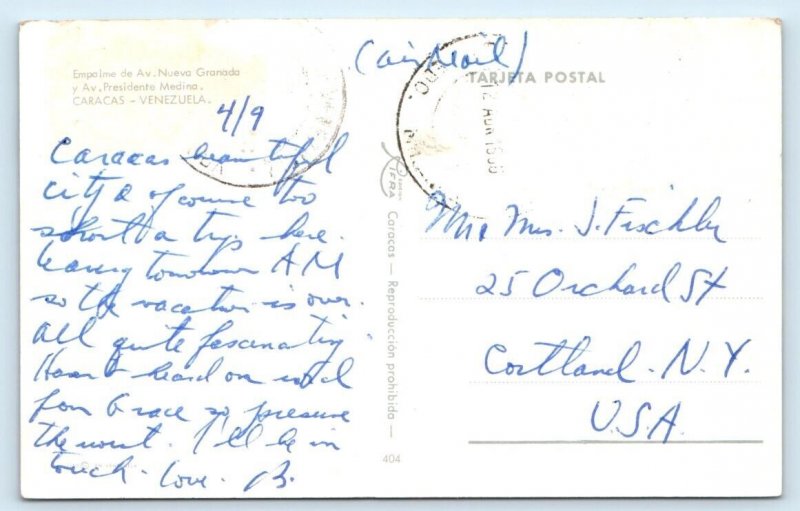 Empalme de Av. Nueva Granada
y Av. Presidente Medina.
CARACAS - VENEZUELA.
4/9
Caracas beautiful
city & of course too
short a trip here.
Leaving tomorrow AM
so the vacation is over.
All quite fascinating.
Haven't heard one word
from Grace so presume
the worst. I'll be in
touch. Love. B.
(air Mail)
TARJETA POSTAL
Caracas — Reproducción prohibida —
404
Mr & Mrs. J. Fischler
25 Orchard St
Cortland. N.Y.
U.S.A.